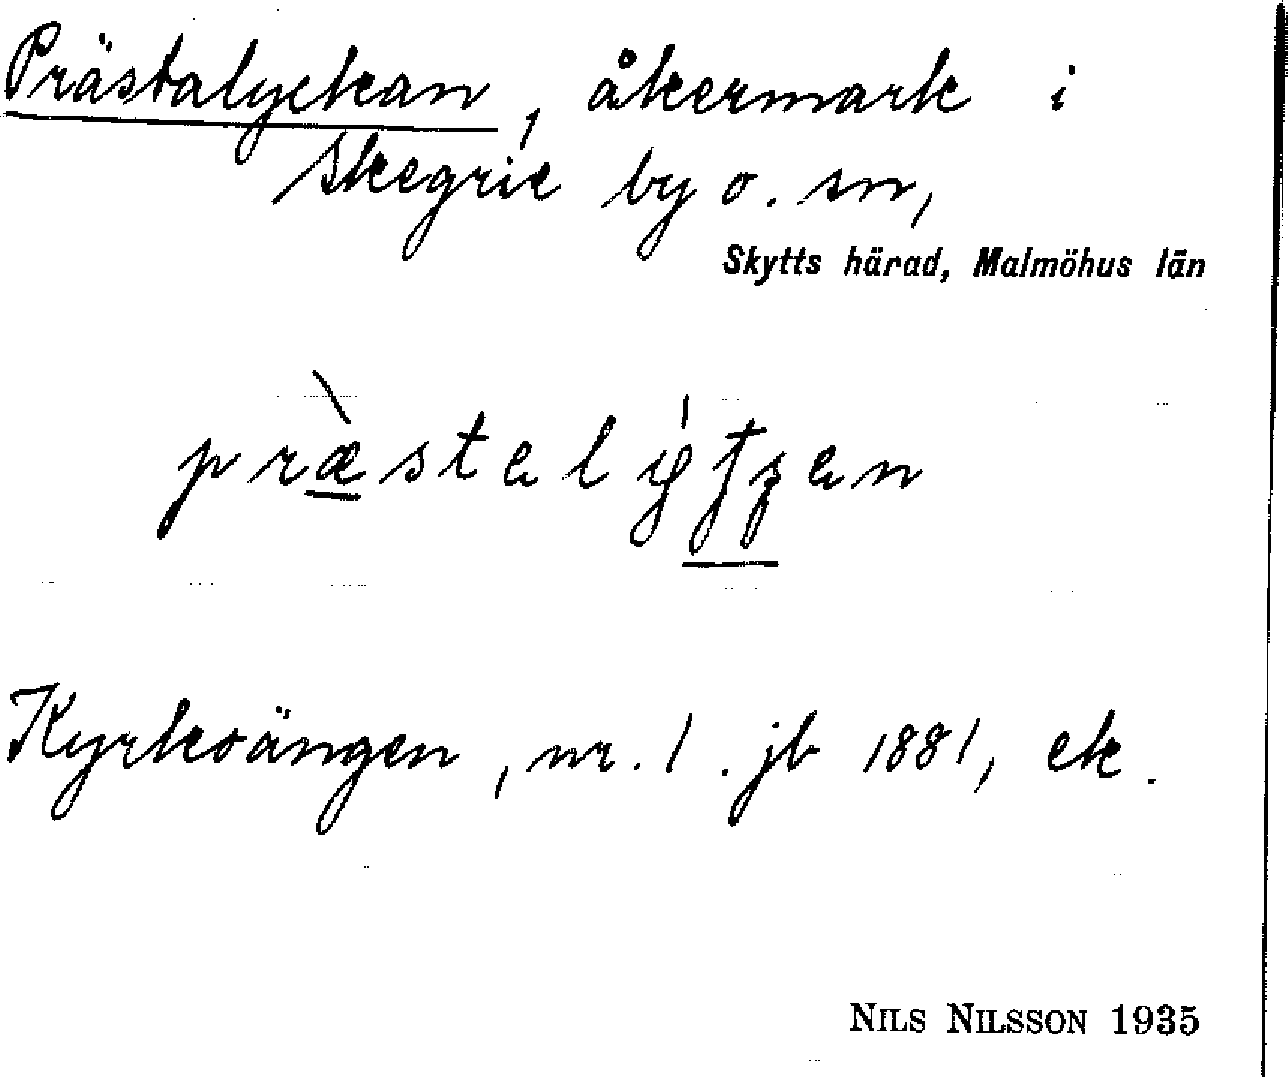 Prästalyckan, åkermark i
Skegrie by o. sn,
Skytts härad, Malmöhus län
Kyrkoängen, nr. 1. jb 1881, ek.
NILS NILSSON 1935